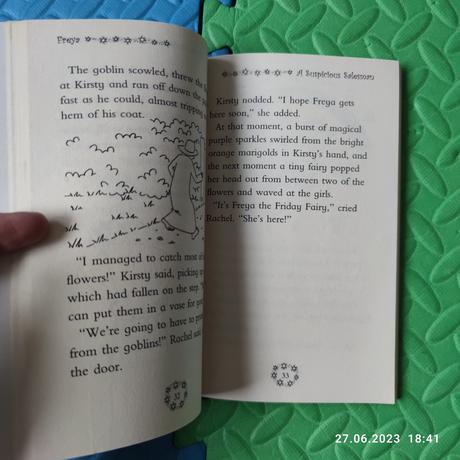 Freya
The goblin scowled, threw the
at Kirsty and ran off down the
fast as he could, almost tripping
hem of his coat.
"I managed to catch most
flowers!" Kirsty said, picking
which had fallen on the step.
can put them in a vase for
"We're going to have to
from the goblins!" Rachel said
the door.
32
A Suspicious Salesman
Kirsty nodded. "I hope Freya gets
here soon," she added.
At that moment, a burst of magical
purple sparkles swirled from the bright
orange marigolds in Kirsty's hand, and
the next moment a tiny fairy popped
her head out from between two of the
flowers and waved at the girls.
"It's Freya the Friday Fairy," cried
Rachel. "She's here!"
33
27.06.2023 18:41